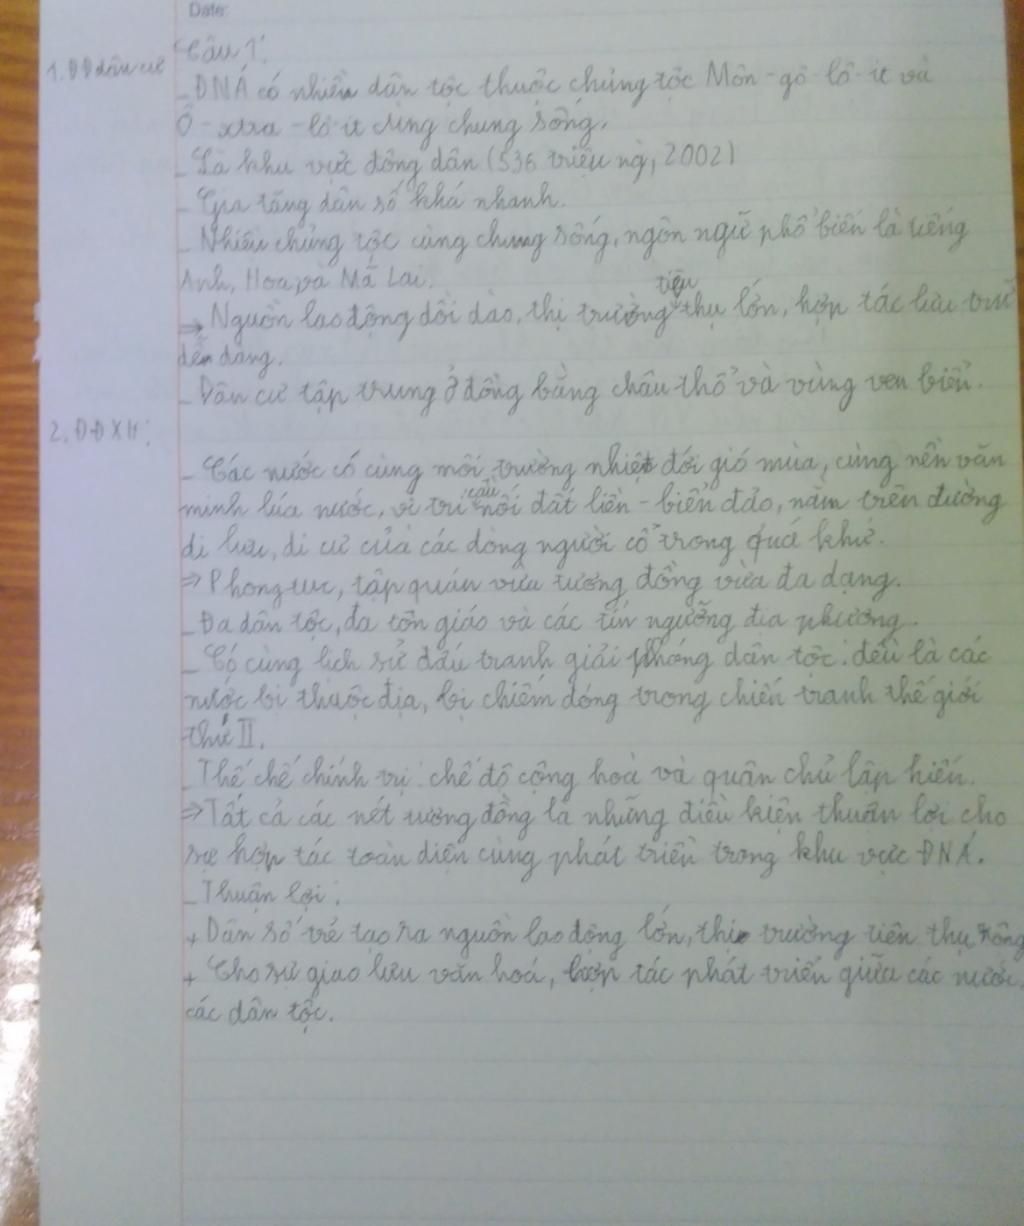 Date:
Câu 1:
1. ĐĐ dân cư
- ĐNÁ có nhiều dân tộc thuộc chủng tộc Môn-gô-lô-it và
Ô-xtra-lô-it cùng chung sống.
- Là khu vực đông dân (536 triệu ng, 2002)
- Gia tăng dân số khá nhanh.
- Nhiều chủng tộc cùng chung sống, ngôn ngữ phổ biến là tiếng
Anh, Hoa và Mã Lai.
⇒ Nguồn lao động dồi dào, thị trường tiêu thụ lớn, hợp tác lưu trữ
dễ dàng.
- Dân cư tập trung ở đồng bằng châu thổ và vùng ven biển.
2. ĐĐXH:
- Các nước có cùng môi trường nhiệt đới gió mùa, cùng nền văn
minh lúa nước, vị trí cầu nối đất liền - biển đảo, nằm trên đường
di lưu, di cư của các dòng người cổ trong quá khứ.
⇒ Phong tục, tập quán vừa tương đồng vừa đa dạng.
- Đa dân tộc, đa tôn giáo và các tín ngưỡng địa phương.
- Có cùng lịch sử đấu tranh giải phóng dân tộc: đều là các
nước bị thuộc địa, bị chiếm đóng trong chiến tranh thế giới
thứ II.
- Thể chế chính trị: chế độ cộng hoà và quân chủ lập hiến.
⇒ Tất cả các nét tương đồng là những điều kiện thuận lợi cho
sự hợp tác toàn diện cùng phát triển trong khu vực ĐNÁ.
- Thuận lợi:
+ Dân số trẻ tạo ra nguồn lao động lớn, thị trường tiên thụ rộng
+ Cho sự giao lưu văn hoá, hợp tác phát triển giữa các nước,
các dân tộc.